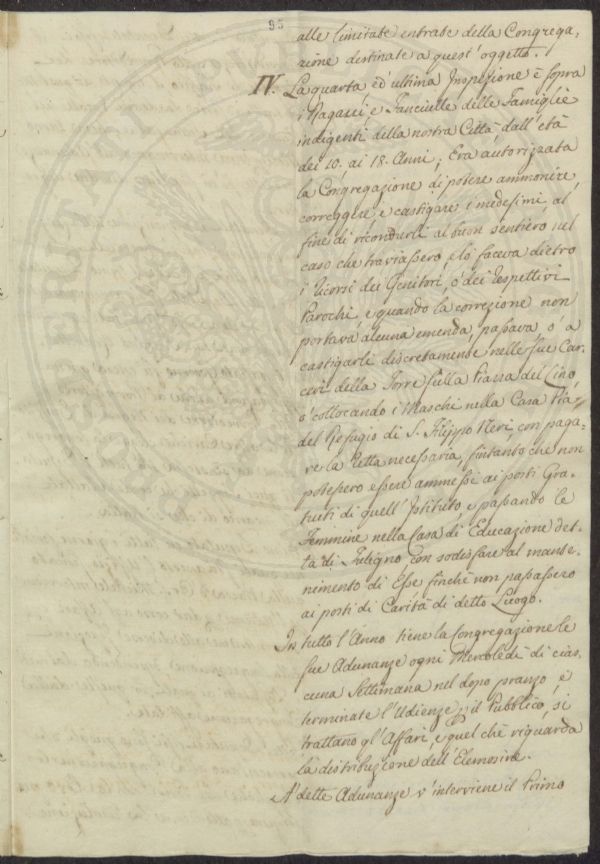 95
alle limitate entrate della Congrega-
zione destinate a quest'oggetto.
IV. La quarta ed'ultima Ispezione è sopra
i Ragazzi e Fanciulle delle Famiglie
indigenti della nostra Città dall'età
dei 10. ai 18. Anni; Era autorizzata
la Congregazione di potere ammonire,
correggere, e castigare i medesimi al
fine di ricondurli al buon sentiero nel
caso che traviassero, e lo faceva dietro
i ricorsi dei Genitori, o' dei respettivi
Parochi, e quando la correzione non
portava alcuna emenda, passava, o' a
castigarli discretamente nelle sue Car-
ceri della Torre sulla Piazza del
o' collocando i Maschi nella Casa Pia
del Refugio di S. Filippo Neri, con paga-
re la Retta necessaria, fintanto che non
potessero essere ammessi ai posti Gra-
tuiti di quell'Istituto, e passando le
Femmine nella Casa di Educazione det-
ta di Fuligno con sodisfare al mante-
nimento di Esse finchè non passassero
ai posti di Carità di detto Luogo.
In tutto l'Anno tiene la Congregazione le
sue Adunanze ogni Mercoledì di cias-
cuna Settimana nel dopo pranzo, e
terminate l'Udienze il Pubblico, si
trattano gl'Affari, e quel che riguarda
la distribuzione dell'Elemosine.
A' dette Adunanze v'interviene il Primo